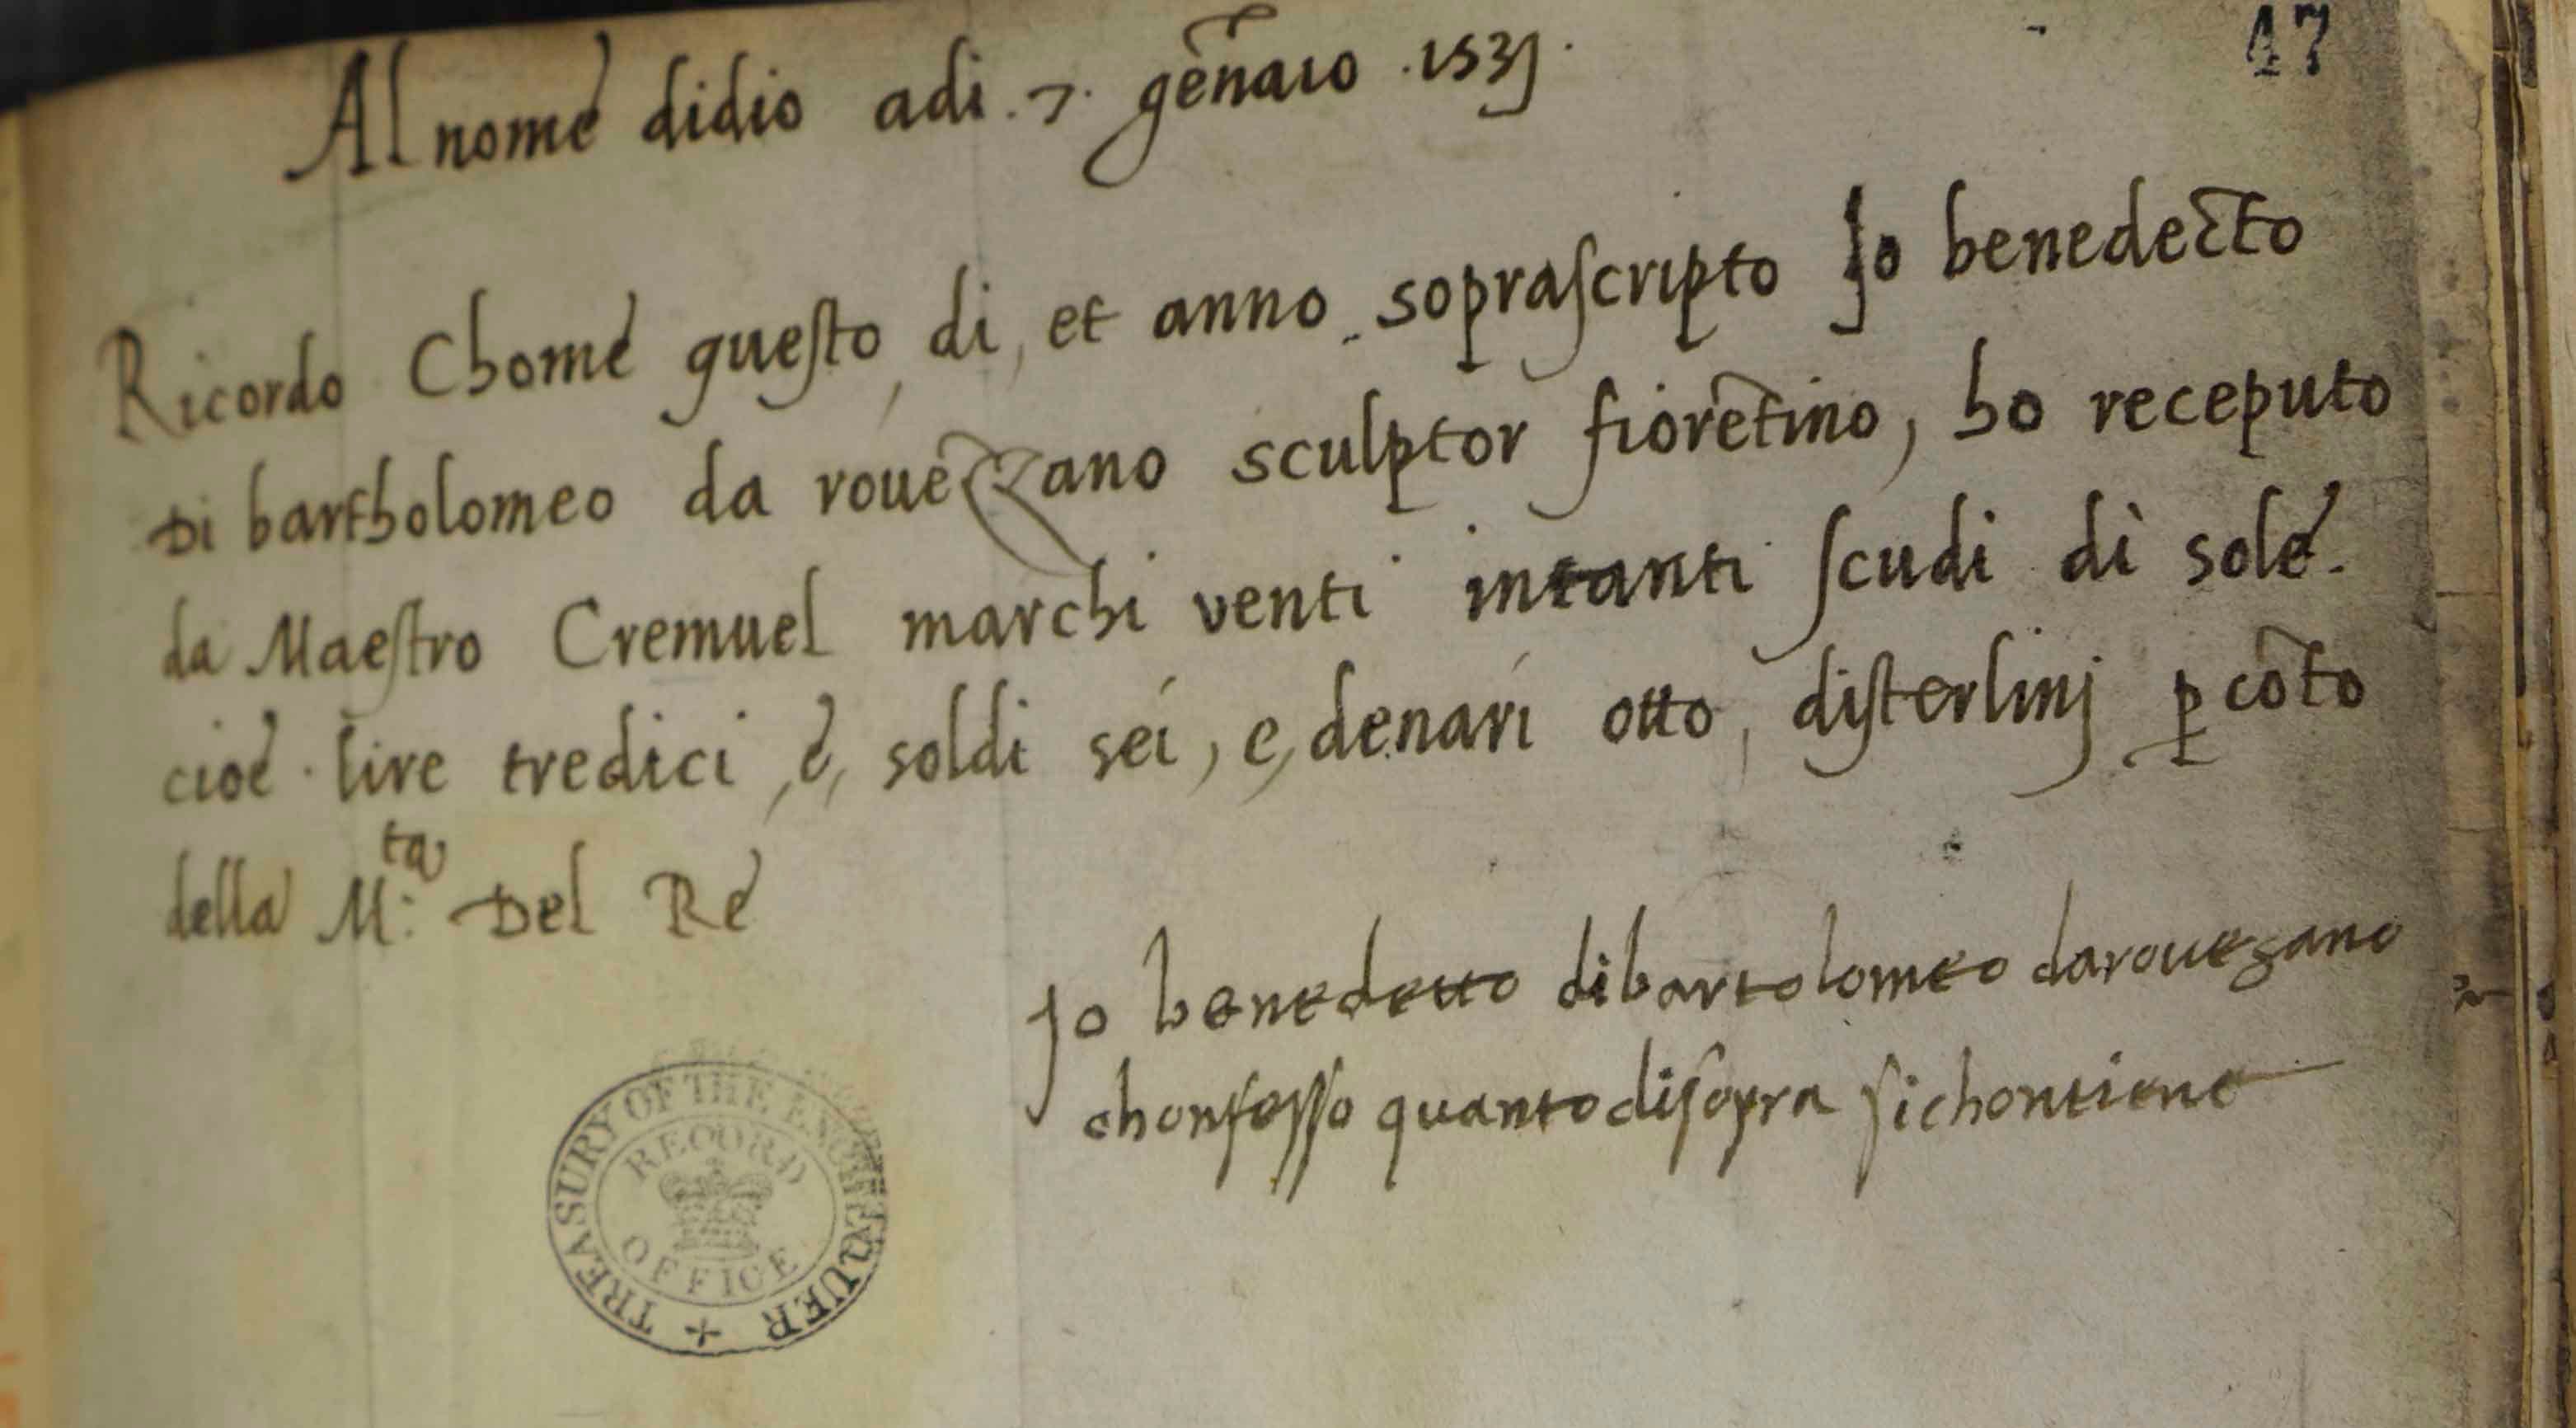 47
Al nome didio adi .7. gēnaio .1531.
Ricordo Chome questo di, et anno soprascripto Jo benedecto
Di bartholomeo da rouēzano sculptor fiorētino, ho receputo
da Maestro Cremuel marchi venti intanti scudi di sole.
cioe lire tredici, e, soldi sei, e, denari otto, disterlinj p cōto
della M:ta Del Re
Jo benedetto dibartolomeo darouezano
chonfesso quanto disopra sichontiene
TREASURY OF THE EXCHEQUER
RECORD
OFFICE